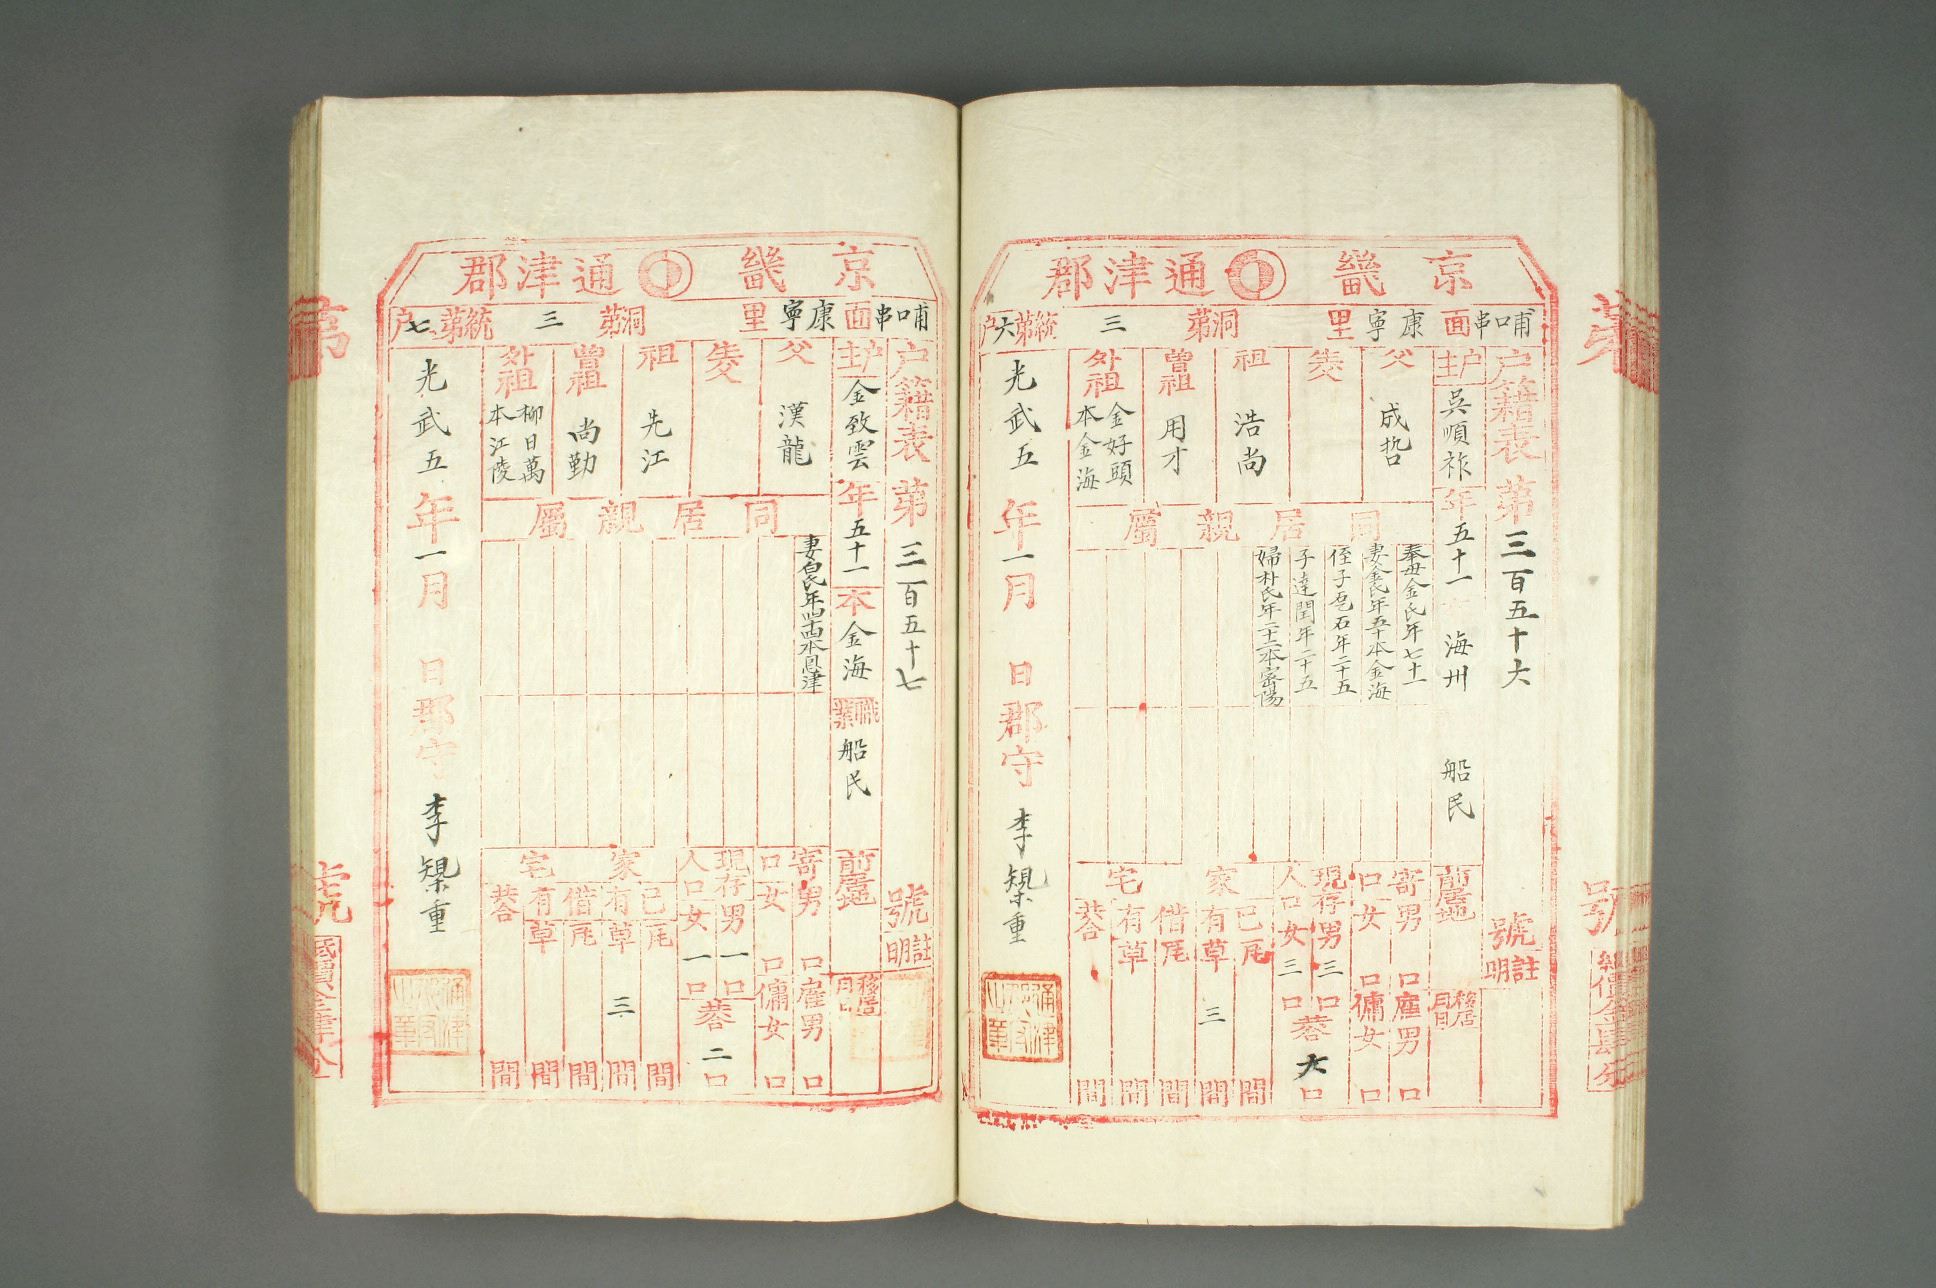 京畿 通津郡
哺口串面 康寧里 洞第三統第六戶
戶籍表第三百五十六號 註明
戶主 吳順祚 年五十一 海州 船民 前居地 移居月日
父 成哲
生父
祖 浩尚
曾祖 用才
外祖 金好頭 本金海
同居親屬
奉母金氏年七十一
妻金氏年五十本金海
侄子乭石年二十五
子達閏年二十五
婦朴氏年二十二本密陽
寄口 男 口 女 口
雇傭 男 口 女 口
現存人口 男三口 女三口 共六口
家宅 己有 瓦 間 草 三 間
借有 瓦 間 草 間
共合 間
光武五年一月 日 郡守 李㮚重
京畿 通津郡
哺口串面 康寧里 洞第三統第七戶
戶籍表第三百五十七號 註明
戶主 金致雲 年五十一 本金海 職業 船民 前居地 移居月日
父 漢龍
生父
祖 先江
曾祖 尚勤
外祖 柳日萬 本江陵
同居親屬
妻白氏年四十四本恩津
寄口 男 口 女 口
雇傭 男 口 女 口
現存人口 男一口 女一口 共二口
家宅 己有 瓦 間 草 三 間
借有 瓦 間 草 間
共合 間
光武五年一月 日 郡守